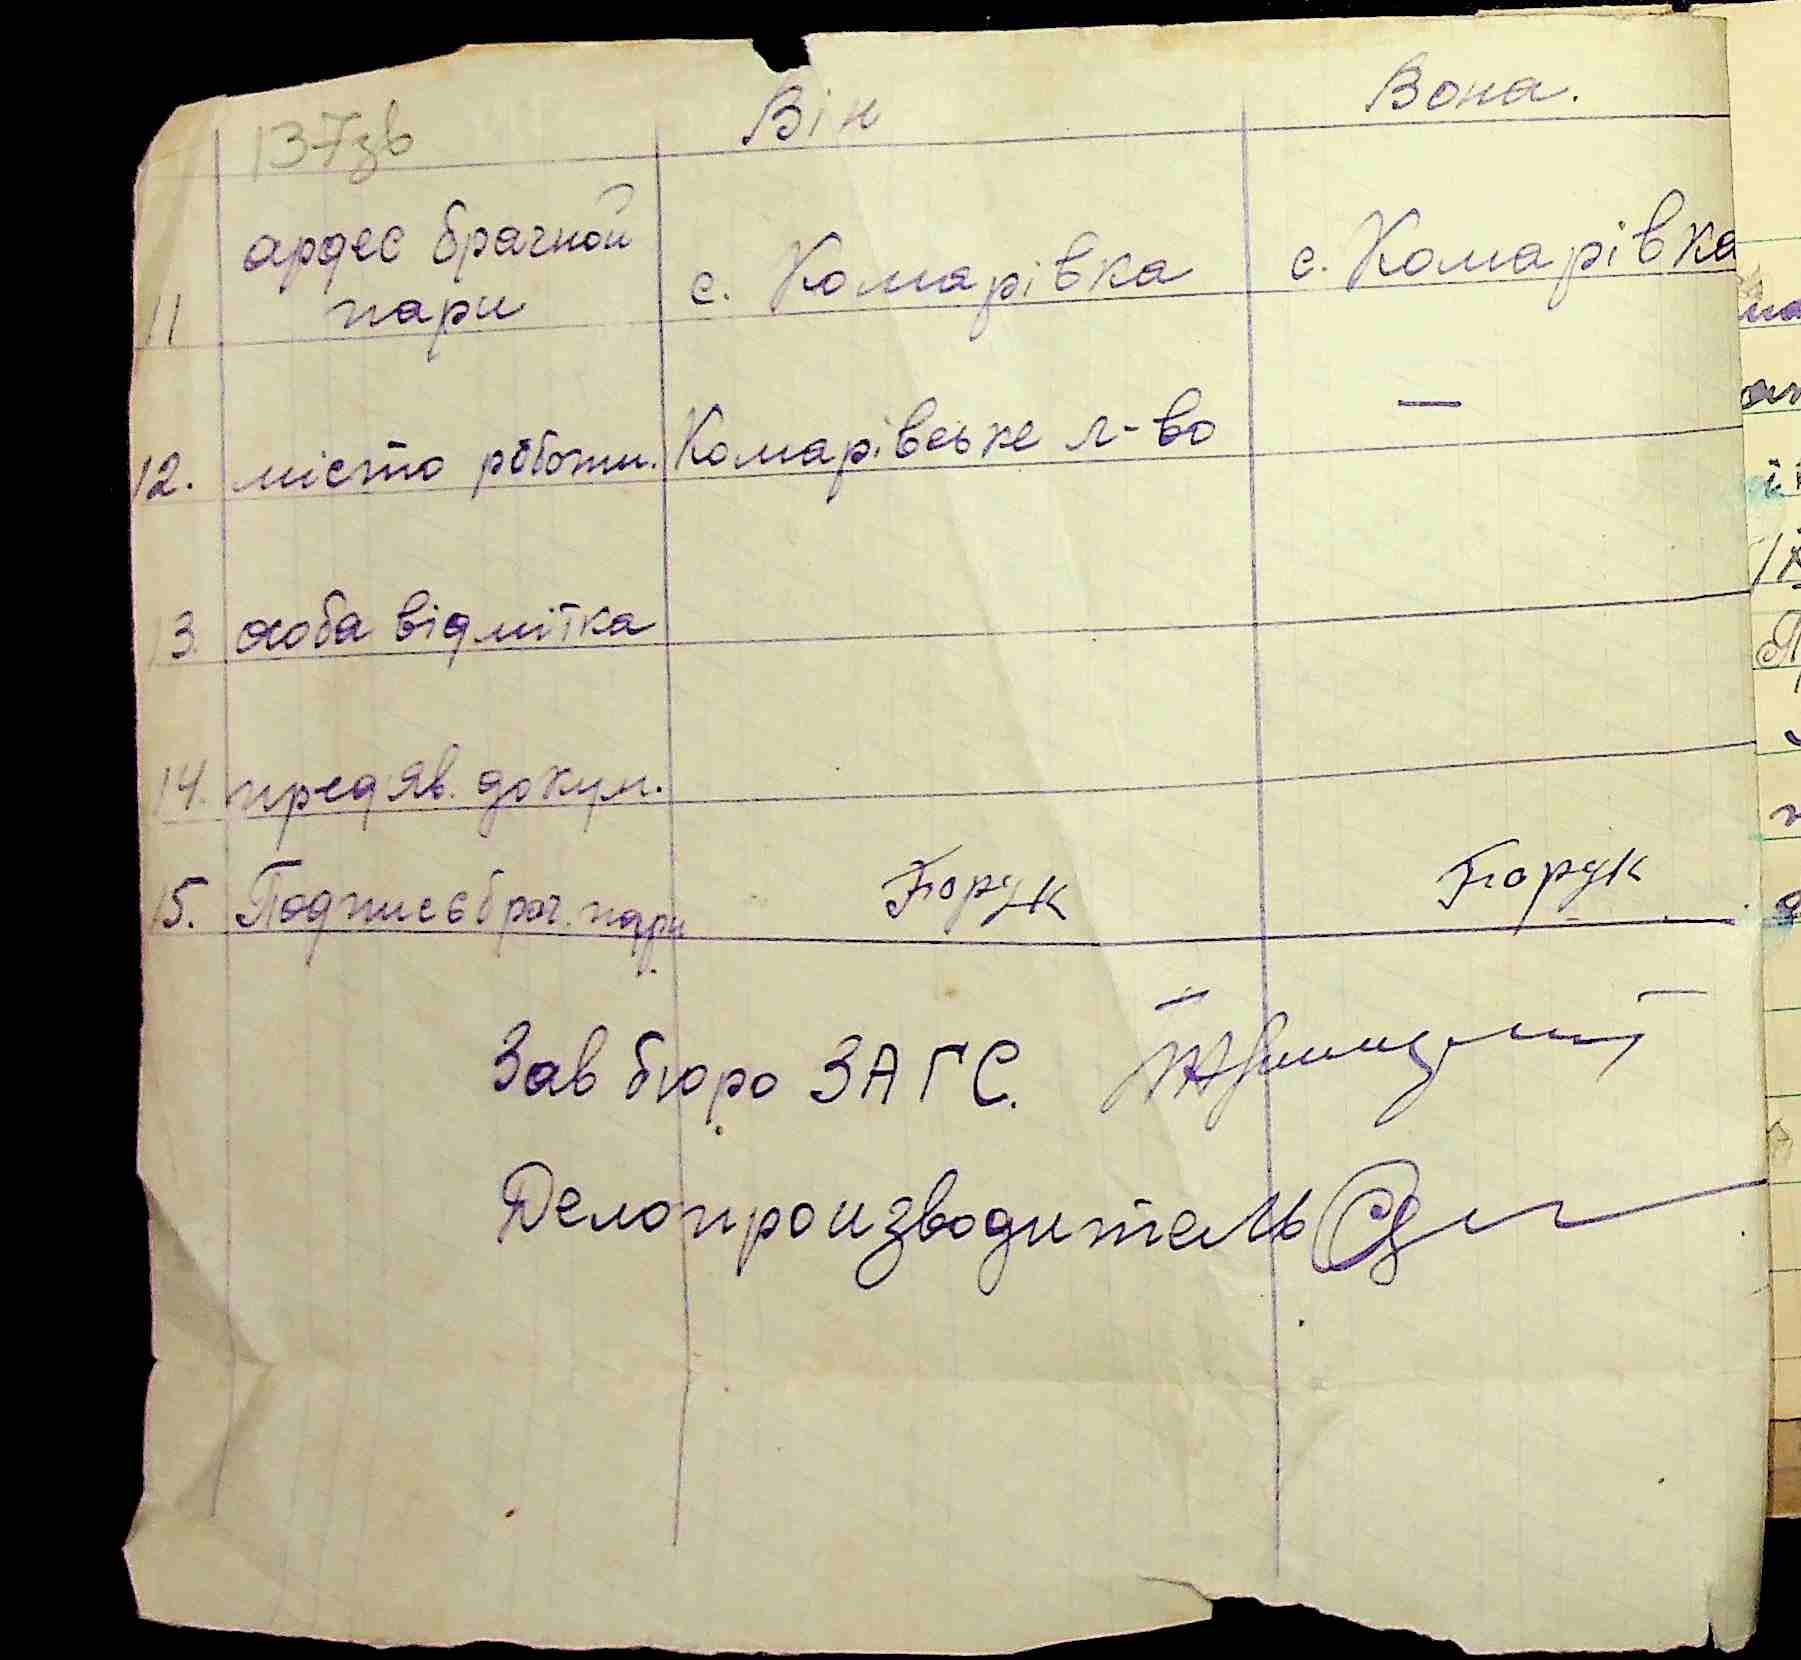 137зв Він Вона.
ардес брачной
11 пари с. Комарівка с. Комарівка
12. місто роботи. Комарівське л-во —
13. особа відмітка
14. пред'яв. докум.
15. Подписє брач. пари Борук Борук
Зав бюро ЗАГС.
Делопроизводитель